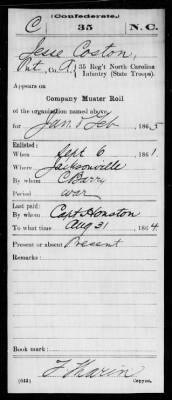 (Confederate.)
C 35 N.C.
Jesse Coston,
Pvt, Co. A, 35 Reg't North Carolina
Infantry (State Troops).
Appears on
Company Muster Roll
of the organization named above,
for Jan. & Feb, 1865
Enlisted:
When Sept 6, 1861
Where Jacksonville
By whom C Barry
Period war
Last paid:
By whom Capt Houston
To what time Aug 31, 1864
Present or absent Present
Remarks:
Book mark:
(642) Copyist.